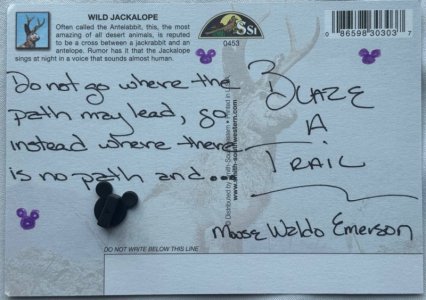 WILD JACKALOPE
Often called the Antelabbit, this, the most
amazing of all desert animals, is reputed
to be a cross between a jackrabbit and an
antelope. Rumor has it that the Jackalope
sings at night in a voice that sounds almost human.
SSI
0453
0 86598 30303 7
Do not go where the
path may lead, go
instead where there
is no path and ...
BLAZE
A
TRAIL
Moose Waldo Emerson
www.smith-southwestern.com
DO NOT WRITE BELOW THIS LINE